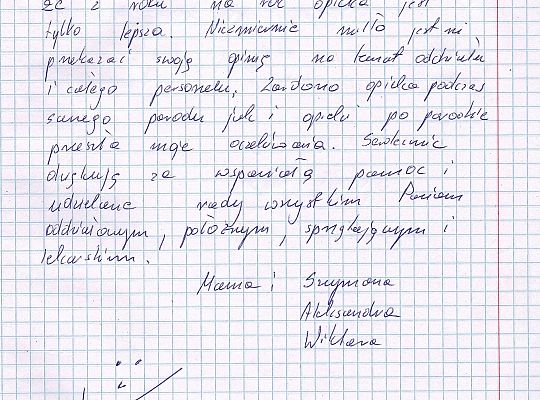 że z roku na rok opieka jest
tylko lepsza. Niezmiernie miło jest mi
przekazać swoją opinię na temat oddziału
i całego personelu. Zarówno opieka podczas
samego porodu jak i opieki po porodzie
przeszła moje oczekiwania. Serdecznie
dziękuję za wspaniałą pomoc i
udzielane rady wszystkim Paniom
oddziałowym, położnym, sprzątającym i
lekarskim.
Mama: Szymona
Aleksandra
Wiktora